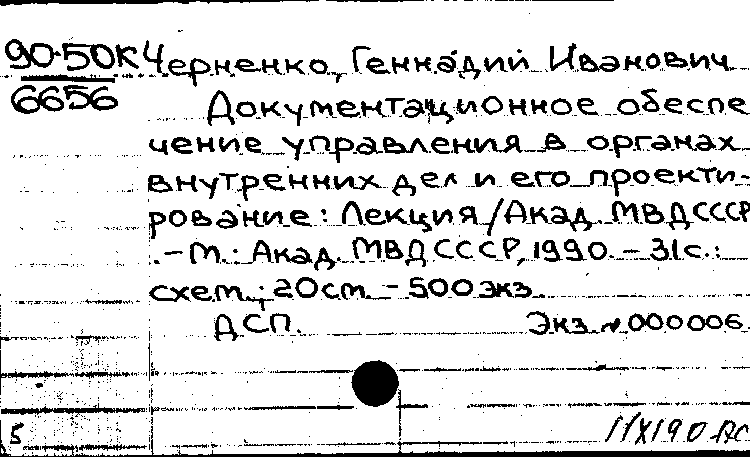 90-50К Черненко, Геннадий Иванович
6656
Документационное обеспе
чение управления в органах
внутренних дел и его проекти-
рование: Лекция/Акад. МВД СССР
.-М.: Акад. МВД СССР, 1990. - 31с.:
схем.; 20см. - 500 экз.
ДСП. Экз. №000006
5